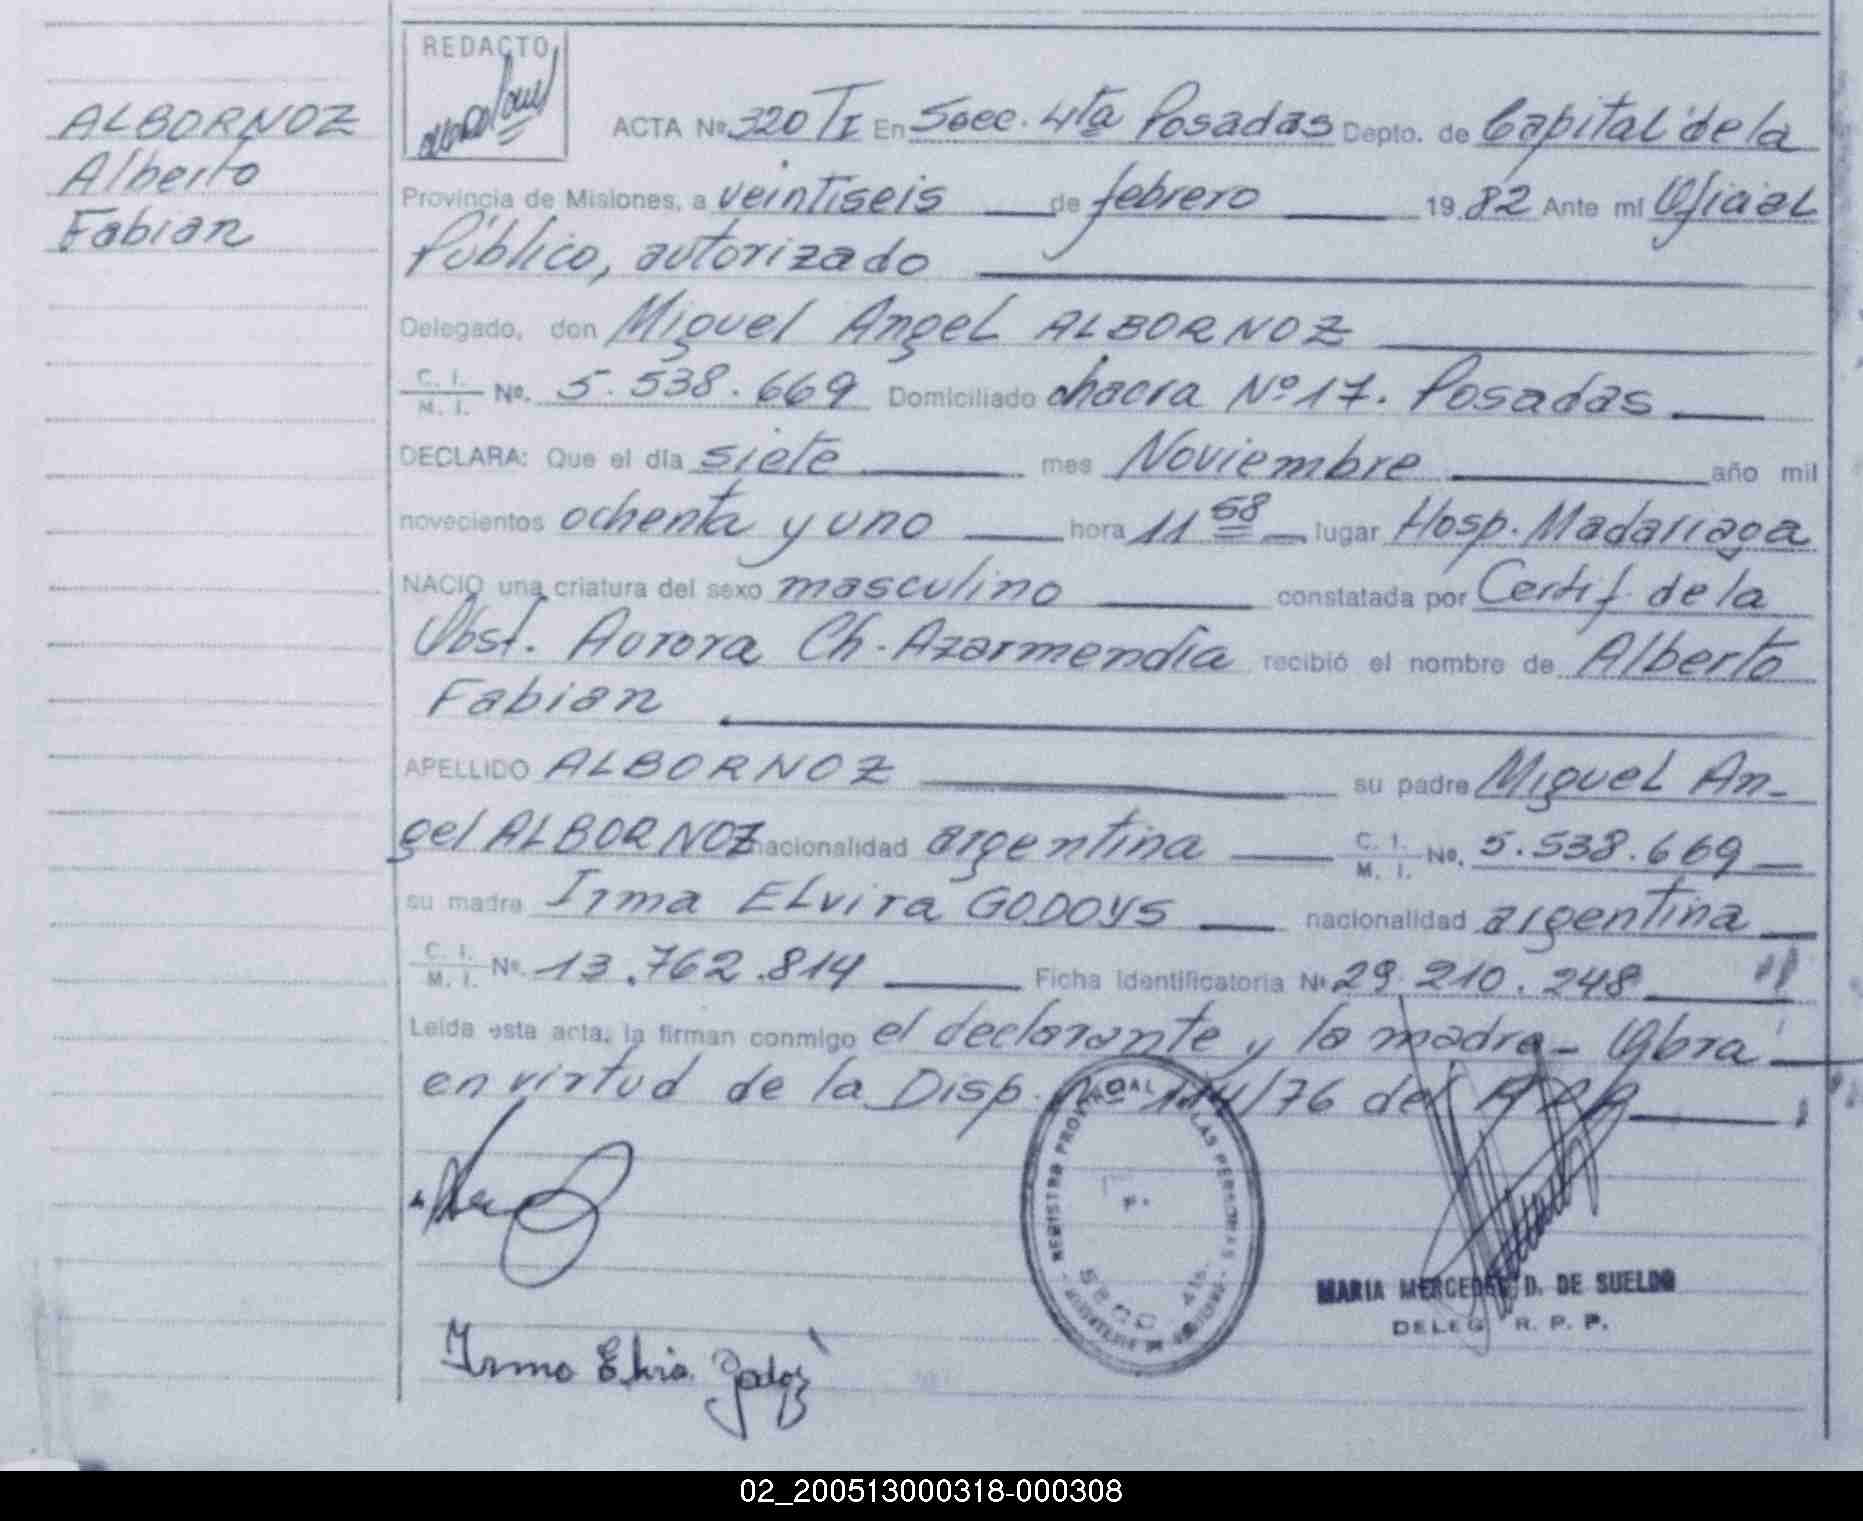 ALBORNOZ
Alberto
Fabian
REDACTO
ACTA Nº 320 TI En Secc. 4ta Posadas Depto. de Capital de la
Provincia de Misiones, a veintiseis de febrero 19 82 Ante mi Oficial
Público, autorizado
Delegado, don Miguel Angel ALBORNOZ
C. I. / M. I. Nº. 5.538.669 Domiciliado chacra Nº 17. Posadas
DECLARA: Que el día siete mes Noviembre año mil
novecientos ochenta y uno hora 11 58 lugar Hosp. Madariaga
NACIO una criatura del sexo masculino constatada por Certif. de la
Obst. Aurora Ch. Azarmendía recibió el nombre de Alberto
Fabian
APELLIDO ALBORNOZ su padre Miguel An-
gel ALBORNOZ nacionalidad argentina C. I. / M. I. Nº. 5.538.669
su madre Irma ELvira GODOYS nacionalidad argentina
C. I. / M. I. Nº. 13.762.814 Ficha identificatoria Nº 29.210.248
Leída esta acta, la firman conmigo el declarante y la madre - Obra
en virtud de la Disp. Nº /76 del
REGISTRO PROVINCIAL DE LAS PERSONAS
SECC 4ta.
MARIA MERCEDES D. DE SUELDO
DELEG R. P. P.
Irma Elvira Godoy
02_200513000318-000308